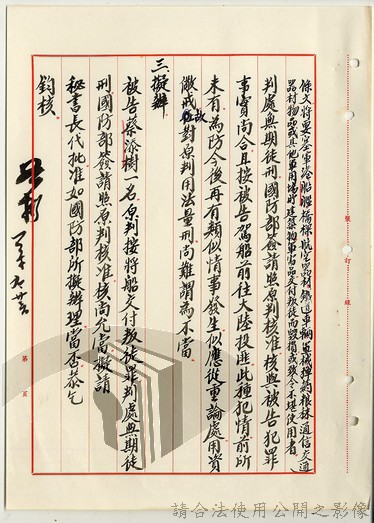 條文將要塞軍港船艦橋樑航空器材鐵道車輛軍械彈藥糧秣通信交通
器材物品或其他軍用場所建築物軍需品交付叛徒而毀損或致令不堪使用者
判處無期徒刑國防部簽請照原判核准核與被告犯罪
事實尚合且按被告駕船前往大陸投匪此種犯情前所
未有為防今後再有類似情事發生似應從重論處用資
儆戒故對原判用法量刑尚難謂為不當
三擬辦
被告蔡添樹一名原判按將船交付叛徒罪判處無期徒
刑國防部簽請照原判核准核尚允當擬請
秘書長代批准如國防部所擬辦理當否恭乞
鈞核
裝
訂
線
第 頁
請合法使用公開之影像